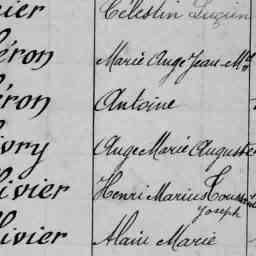 Célestin Lucien
éron Marie Ange Jean Mie
éron Antoine
ivry Ange Marie Auguste
livier Henri Marius Touss
Joseph
livier Alain Marie